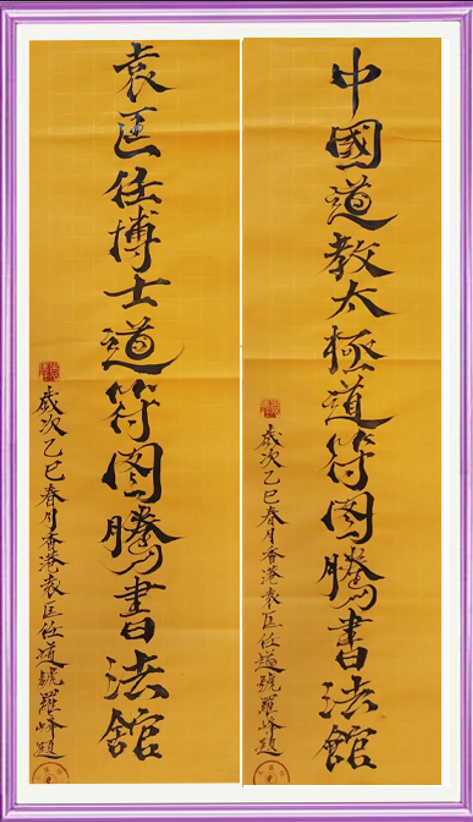 中國道教太極道符图騰書法館
歲次乙巳春月香港袁匡任道號羅峰題
袁匡任博士道符图騰書法館
歲次乙巳春月香港袁匡任道號羅峰題